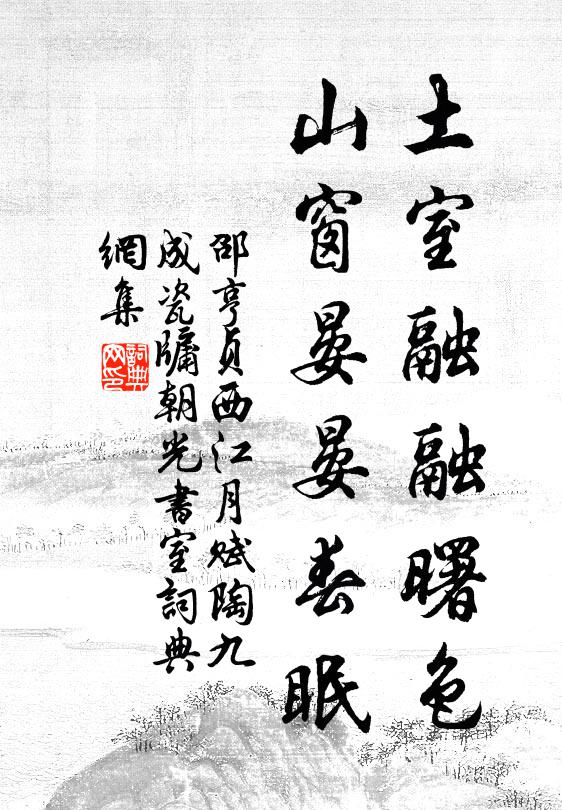 土室融融曙色
山窗晏晏春眠
邵亨貞西江月賦陶九
成瓷牖朝光書室詞典
網集
詞典
网印